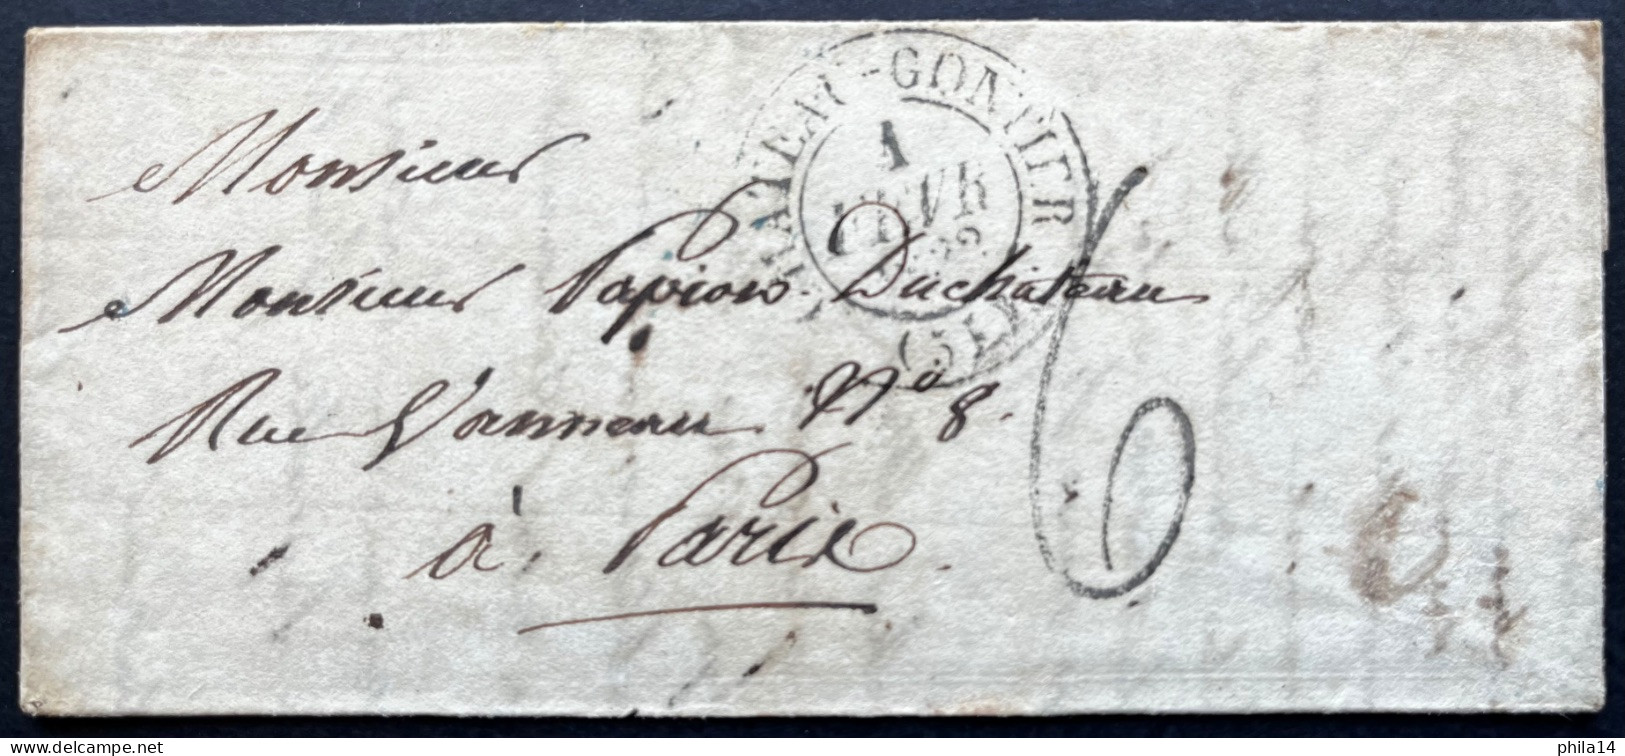 CHATEAU-GONTIER
1
FEVR
(51)
Monsieur
Monsieur Papion Duchateau
Rue Vanneau No 8.
à Paris.
6
delcampe.net
phila14